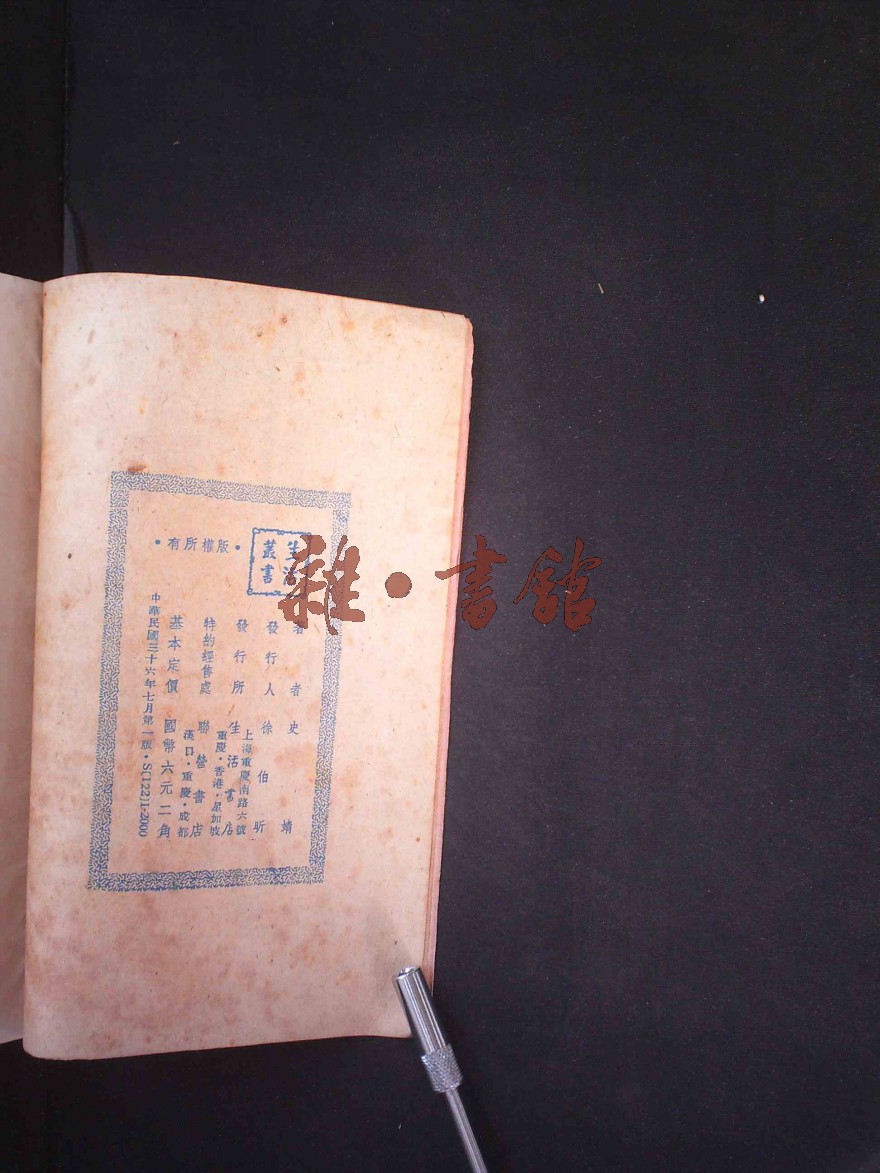 生活
叢書
•版權所有•
著者 史靖
發行人 徐伯昕
發行所 生活書店
上海重慶南路六號
重慶・香港・星加坡
特約經售處 聯營書店
漢口・重慶・成都
基本定價 國幣六元二角
中華民國三十六年七月第一版・S(122)1-2000
雜・書館